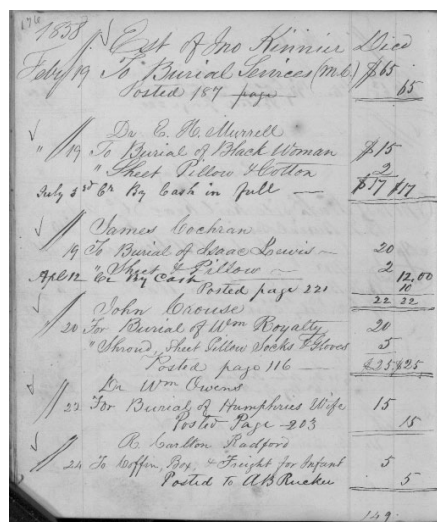 176
1858
Est of Jno Kinnier Decd
Feby 19 To Burial Services (M.C.) $65
Posted 187 page 65
Dr E. H. Murrell
" 19 To Burial of Black Woman $15
" Sheet Pillow & Cotton 2
July 3rd Cr By Cash in full — $17 $17
James Cochran
19 To Burial of Isaac Lewis — 20
" Sheet & Pillow — 2
Apl 12 Cr By Cash 12,00
Posted page 221 10
22 22
John Crouse
20 For Burial of Wm Royalty 20
" Shroud, Sheet Pillow Socks & Gloves 5
Posted page 116 — $25 $25
Dr Wm Owens
22 For Burial of Humphries Wife 15
Posted Page - 203 15
R. Carlton Radford
24 To Coffin, Box, & Freight for Infant 5
Posted to AB Rucker 5
149